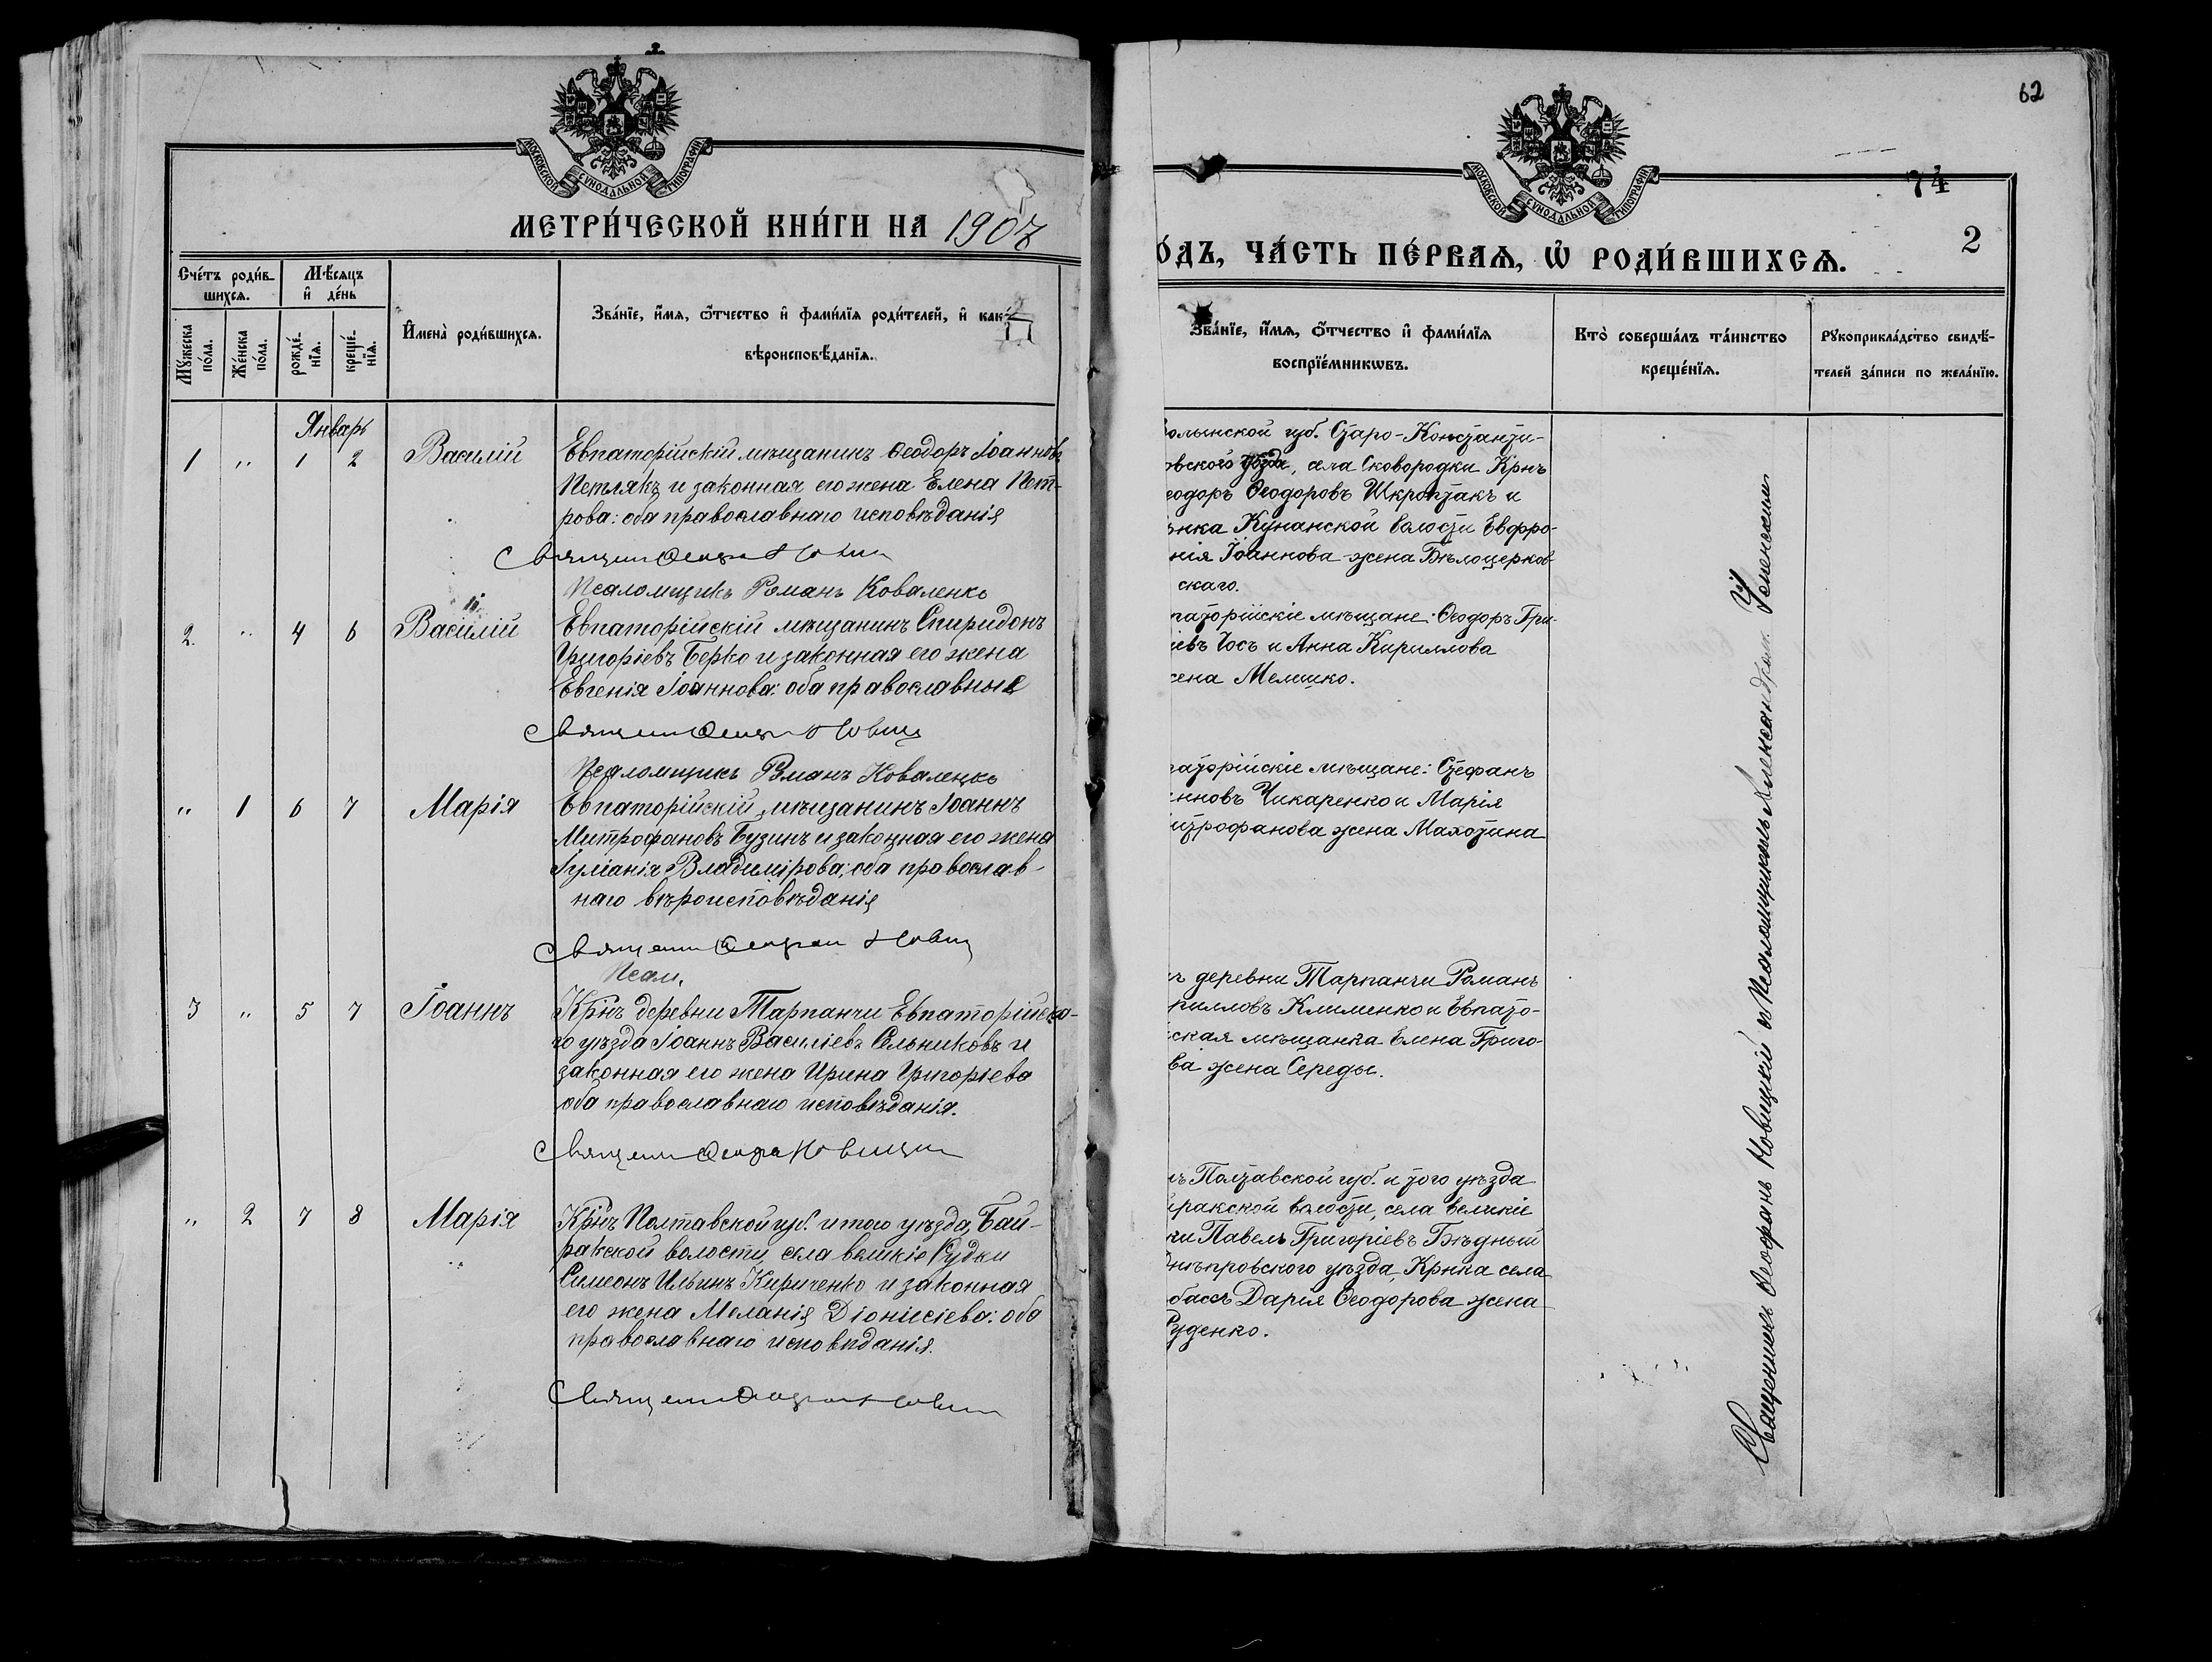 МОСКОВСКОЙ СѴНОДАЛЬНОЙ ТИПОГРАФІИ
МЕТРИ́ЧЕСКОЙ КНИ́ГИ НА 1907
Сче́тъ роди́в-
шихсѧ.
Мꙋ́жеска по́ла.
Же́нска по́ла.
Мѣ́сѧцъ
и҆ де́нь
рожде́-
нїѧ.
креще́-
нїѧ.
И҆мена̀ роди́вшихсѧ.
Зва́нїе, и҆́мѧ, ѻ҆́тчество и҆ фами́лїѧ роди́телей, и҆ како́-
вѣроисповѣ́данїѧ.
Январь
1 " 1 2 Василій
Евпаторійскій мѣщанинъ Ѳеодоръ Іоанновъ
Петлякъ и законная его жена Елена Пет-
рова: оба православнаго исповѣданія
Псаломщикъ Романъ Коваленко
2. " 4 6 Василій
Евпаторійскій мѣщанинъ Спиридонъ
Григоріевъ Берко и законная его жена
Евгенія Іоаннова: оба православные
Псаломщикъ Романъ Коваленко
" 1 6 7 Марія
Евпаторійскій мѣщанинъ Іоаннъ
Митрофановъ Бузинъ и законная его жена
Іуліанія Владимірова; оба православ-
наго вѣроисповѣданія
Псал.
3 " 5 7 Іоаннъ
Кр̃нъ деревни Тарпанчи Евпаторійско-
го уѣзда Іоаннъ Василіевъ Сельниковъ и
законная его жена Ирина Григоріева
оба православнаго исповѣданія.
" 2 7 8 Марія
Кр̃нъ Полтавской губ. и того уѣзда, Бай-
ракской волости, села великіе Рудки
Симеонъ Ильинъ Кириченко и законная
его жена Меланія Діонисіева: оба
православнаго исповѣданія.
62
МОСКОВСКОЙ СѴНОДАЛЬНОЙ ТИПОГРАФІИ
74
2
О́ДЪ, ЧА́СТЬ ПЕ́РВАѦ, Ѡ҆ РОДИ́ВШИХСѦ.
Зва́нїе, и҆́мѧ, ѻ҆́тчество и҆ фами́лїѧ
воспрїе́мникѡвъ.
Кто̀ соверша́лъ та́инство
креще́нїѧ.
Рꙋкоприкла́дство свидѣ́-
телей за́писи по жела́нїю.
олынской губ. Старо-Константи-
овского уѣзда, села Сковородки Крнъ
еодоръ Ѳеодоровъ Шкроптакъ и
янка Кунанской волости Евфро-
нія Іоаннова жена Бѣлоцерков-
скаго.
паторійскіе мѣщане: Ѳеодоръ Гри-
іевъ Гось и Анна Кириллова
жена Мелишко.
аторійскіе мѣщане: Стефанъ
нновъ Чикаренко и Марія
итрофанова жена Махотина
деревни Тарпанчи Романъ
рилловъ Клименко и Евпато-
ская мѣщанка Елена Григо-
ва жена Середы.
Полтавской губ. и того уѣзда
йракской волости, села великіе
ки Павелъ Григоріевъ Бѣдный
Днѣпровского уѣзда, Крнка села
басъ Дарія Ѳеодорова жена
Руденко.
Священникъ Ѳеофанъ Новицкій съ Псаломщикомъ Александромъ Успенскимъ